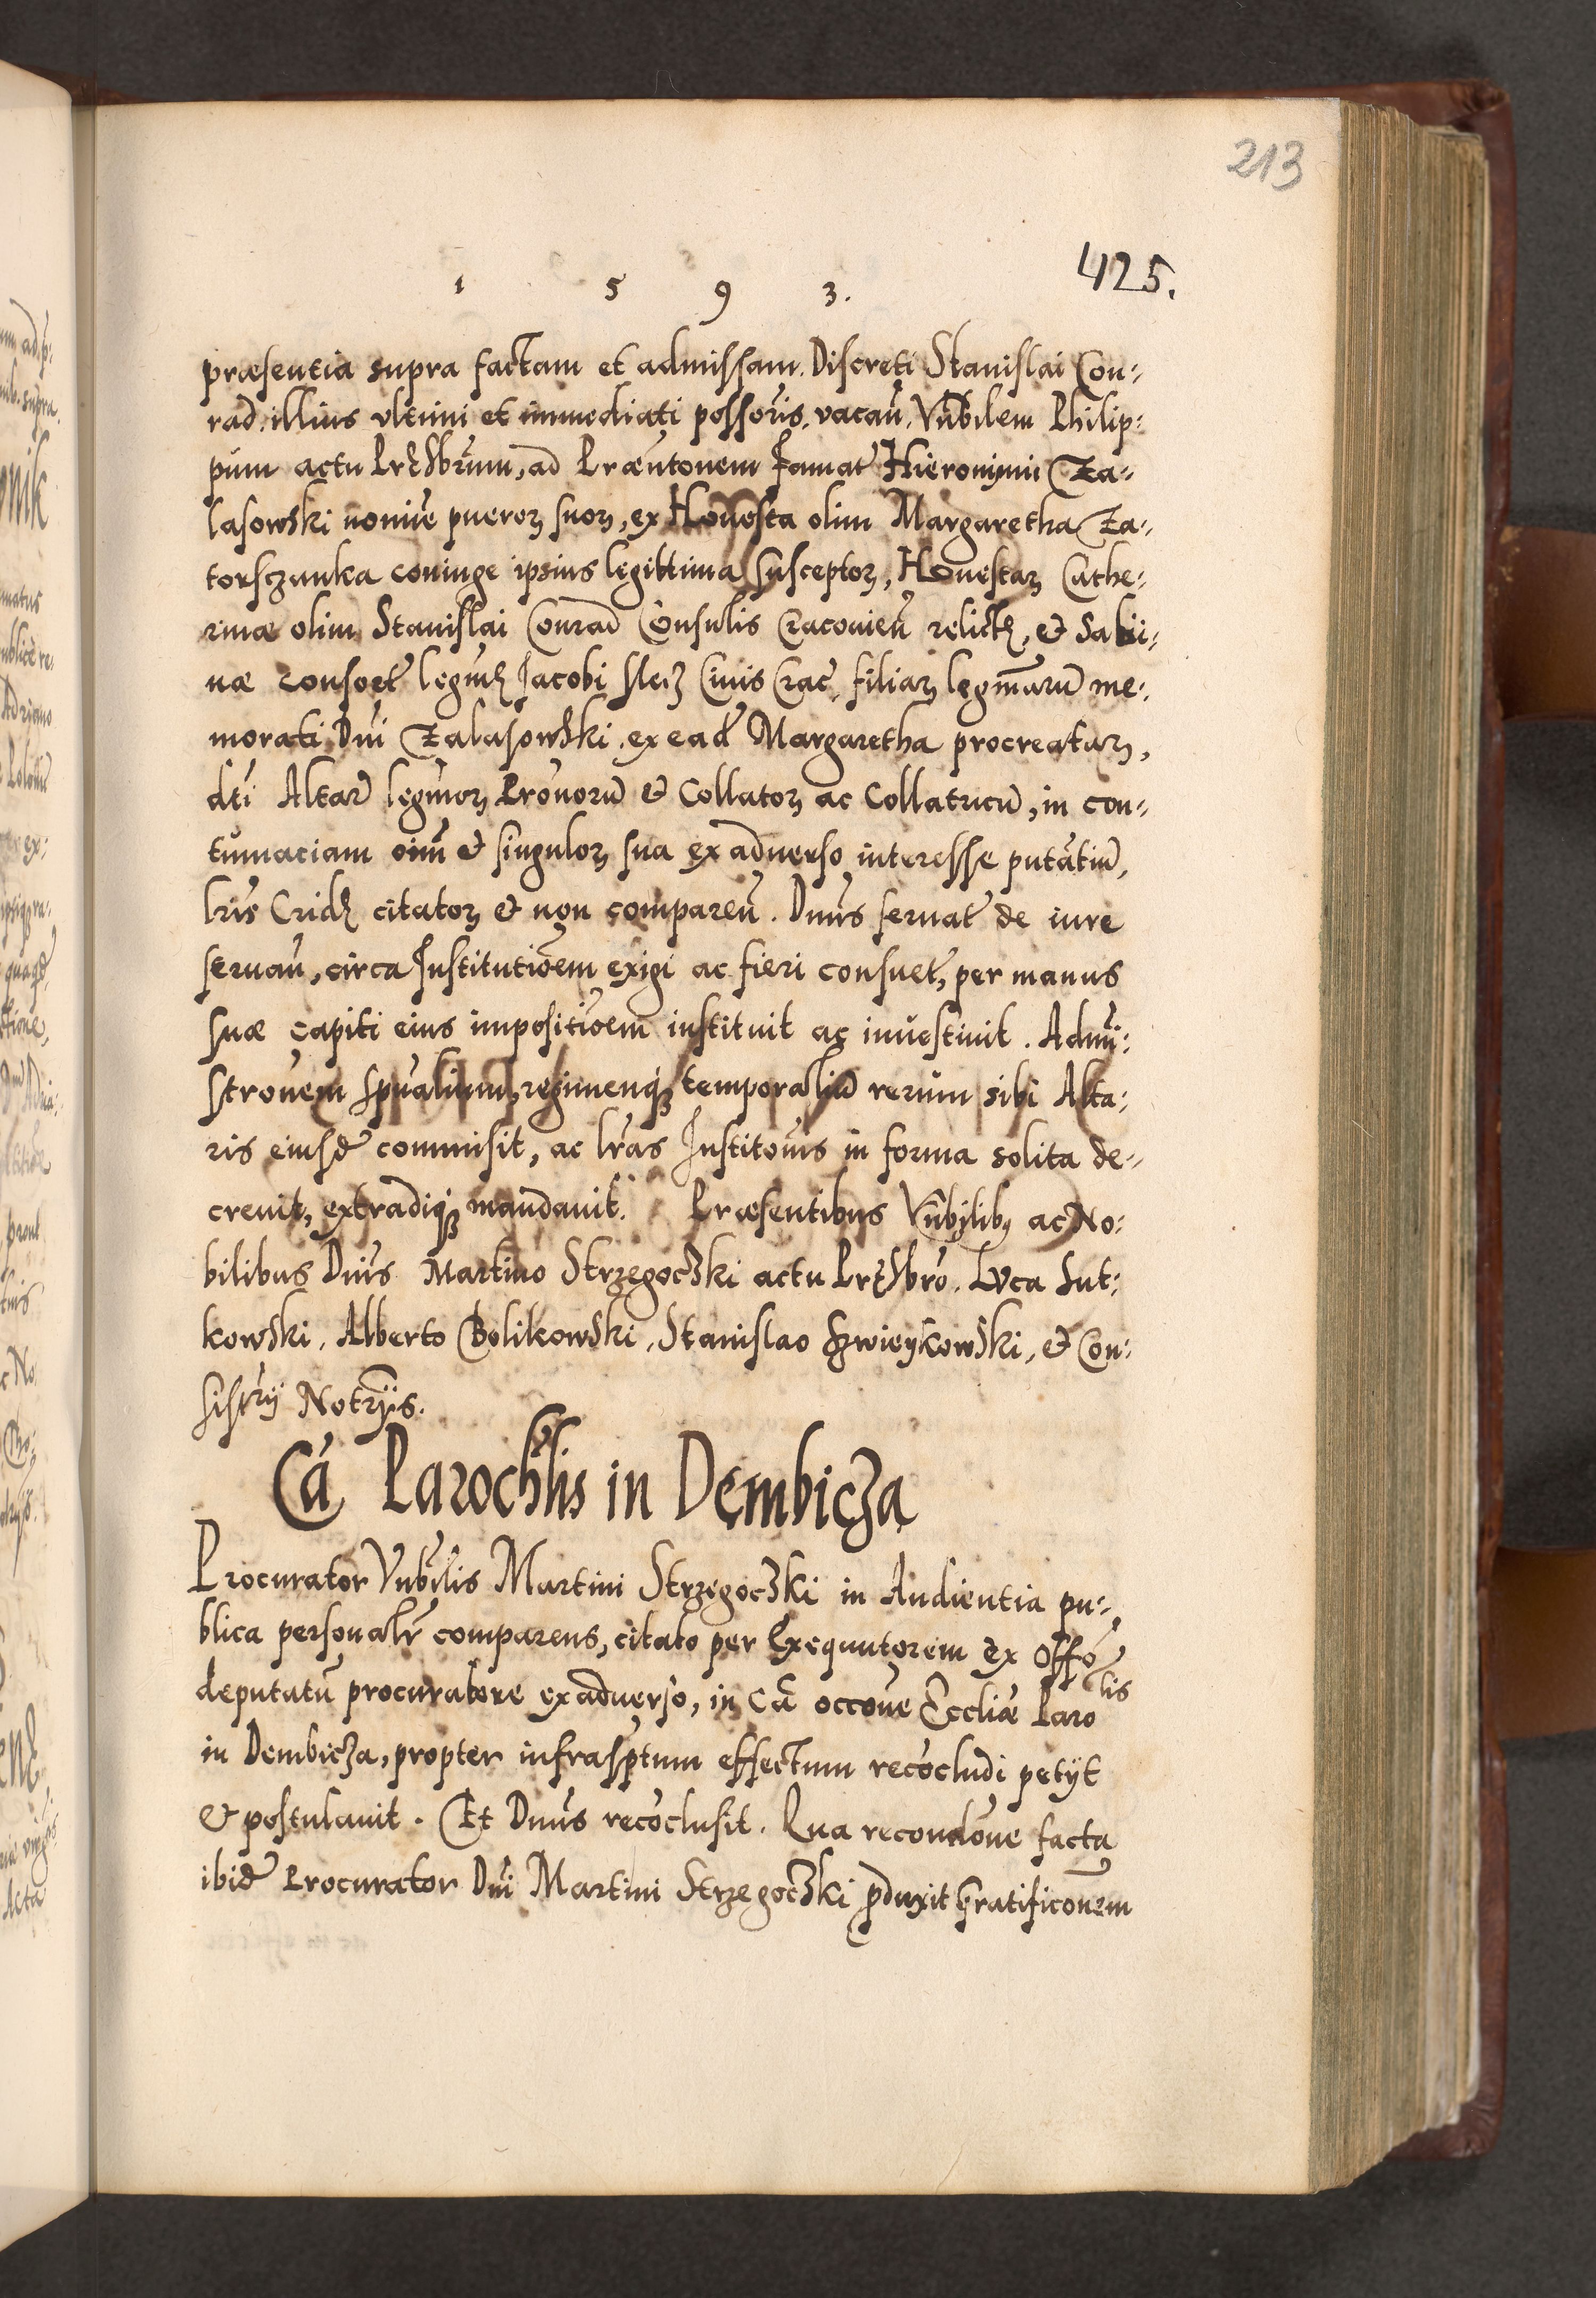 213
425.
1 5 9 3.
præsentia supra factam et admissam. Discreti Stanislai Con:
rad illius vltimi et immediati possoris. vacan̄. Vn̄bilem Philip:
pum actu Prȩsbrum, ad Præn̄tonem Famat̃ Hieronymi Za:
lasowski nomīe pueroꝝ suoꝝ, ex Honesta olim Margaretha Za:
torsczanka coniuge ipsius legittima susceptoꝝ, Honestaꝝ Cathe:
rinæ olim Stanislai Conrad Consulis Cracovien̄ relictꝭ, et Sabi:
næ consort̃ legimꝭ Jacobi Civis Crac̃, filiaꝝ legmārū me:
morati Dn̄i Zalasowski. ex ead̃ Margaretha procreataꝝ,
dc̄i Altar̃ legimoꝝ Pronorū et Collatoꝝ ac Collatricū, in con:
tumaciam oīm̄ et singuloꝝ sua ex aduerso interesse putātiū,
lr̄is Cridꝭ citatoꝝ et non comparen̄. Dn̄us seruat̃ de iure
seruan̄, circa Institutiōem exigi ac fieri consuet̃, per manus
suæ capiti eius impositiōem instituit ac inuestiuit. Admi:
stronem sp̄ualium, regimenqꝫ temporaliū rerum sibi Alta:
ris eiusd̃ commisit, ac lr̄as Institonis in forma solita de:
creuit, extradiqꝫ mandauit. Præsentibus Vn̄bilibꝫ ac No:
bilibus Dn̄is Martino Strzegoczki actu Prȩsbro. Luca Sut:
kowski, Alberto Bolikowski, Stanislao Szwieykowski, et Con:
sistrij Notrijs.
Cā Parochlis in Dembicza
Procurator Vn̄bilis Martini Strzegoczki in Audientia pu:
blica personalr̃ comparens, citato per Exequutorem ex Offo
deputatū procuratore ex aduerso, in Cā occōne Eccliæ Parolis
in Dembicza, propter infrasptum effectum recōcludi petijt
et postulauit. Et Dn̄us recōclusit. Qua recondōne facta
ibid̃ Procurator Dn̄i Martini Strzegoczki ꝓduxit gratificōnem